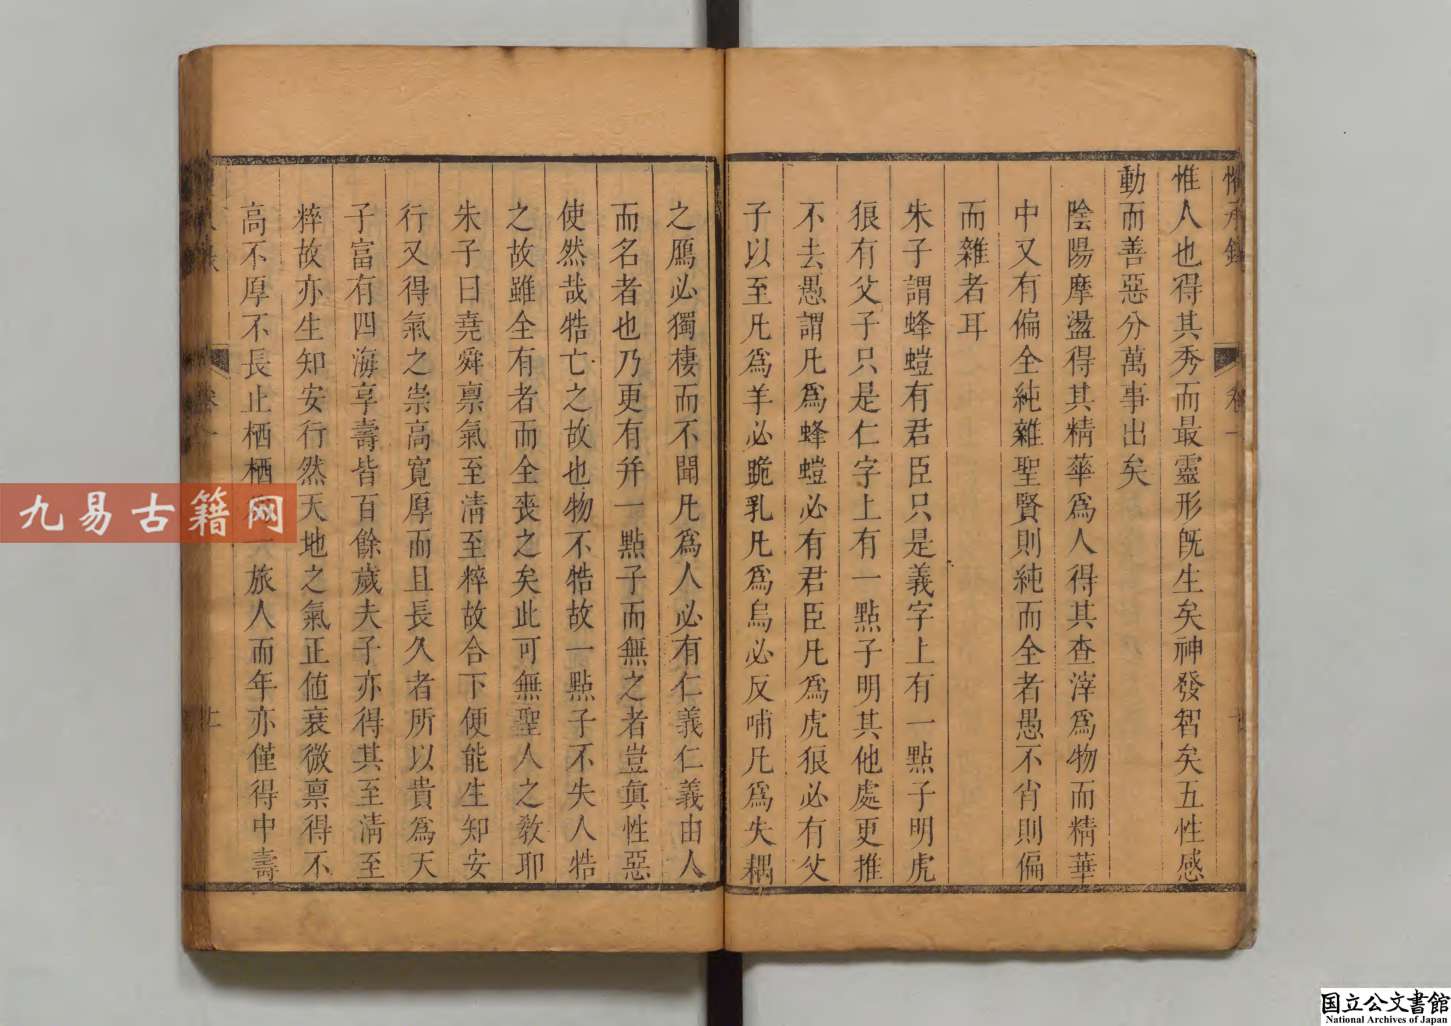 惟人也得其秀而最靈形旣生矣神發智矣五性感
動而善惡分萬事出矣
陰陽摩盪得其精華爲人得其査滓爲物而精華
中又有偏全純雜聖賢則純而全者愚不肖則偏
而雜者耳
朱子謂蜂螘有君臣只是義字上有一點子明虎
狼有父子只是仁字上有一點子明其他處更推
不去愚謂凡爲蜂螘必有君臣凡爲虎狼必有父
子以至凡爲羊必跪乳凡爲烏必反哺凡爲失耦
之鴈必獨棲而不聞凡爲人必有仁義仁義由人
而名者也乃更有并一點子而無之者豈眞性惡
使然哉牿亡之故也物不牿故一點子不失人牿
之故雖全有者而全喪之矣此可無聖人之敎耶
朱子曰堯舜禀氣至淸至粹故合下便能生知安
行又得氣之崇高寬厚而且長久者所以貴爲天
子富有四海享壽皆百餘歲夫子亦得其至淸至
粹故亦生知安行然天地之氣正値衰微禀得不
高不厚不長止栖栖旅人而年亦僅得中壽
卷一
九易古籍网
国立公文書館
National Archives of Japan